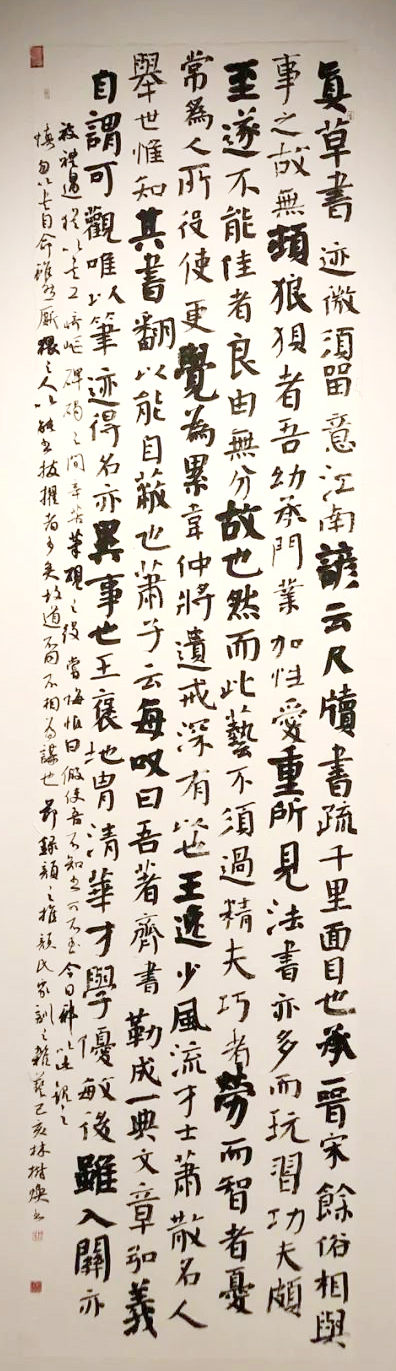 真草書迹微須留意江南諺云尺牘書疏千里面目也承晋宋餘俗相與
事之故無頓狼狽者吾幼承門業加性愛重所見法書亦多而玩習功夫頗
至遂不能佳者良由無分故也然而此藝不須過精夫巧者勞而智者憂
常為人所役使更覺為累韋仲將遺戒深有以也王逸少風流才士蕭散名人
舉世惟知其書翻以能自蔽也蕭子云每叹曰吾著齊書勒成一典文章弘義
自謂可觀唯以筆迹得名亦異事也王褒地胄清華才學優敏後雖入關亦
被禮遇猶以書工崎岖碑碣之間辛苦筆硯之役嘗悔恨曰假使吾不知書可不至今日邪以此觀之
慎勿以書自命雖然厮猥之人以能書拔擢者多矣故道不同不相為謀也節錄顏之推顏氏家訓之雜藝己亥林樹煥書